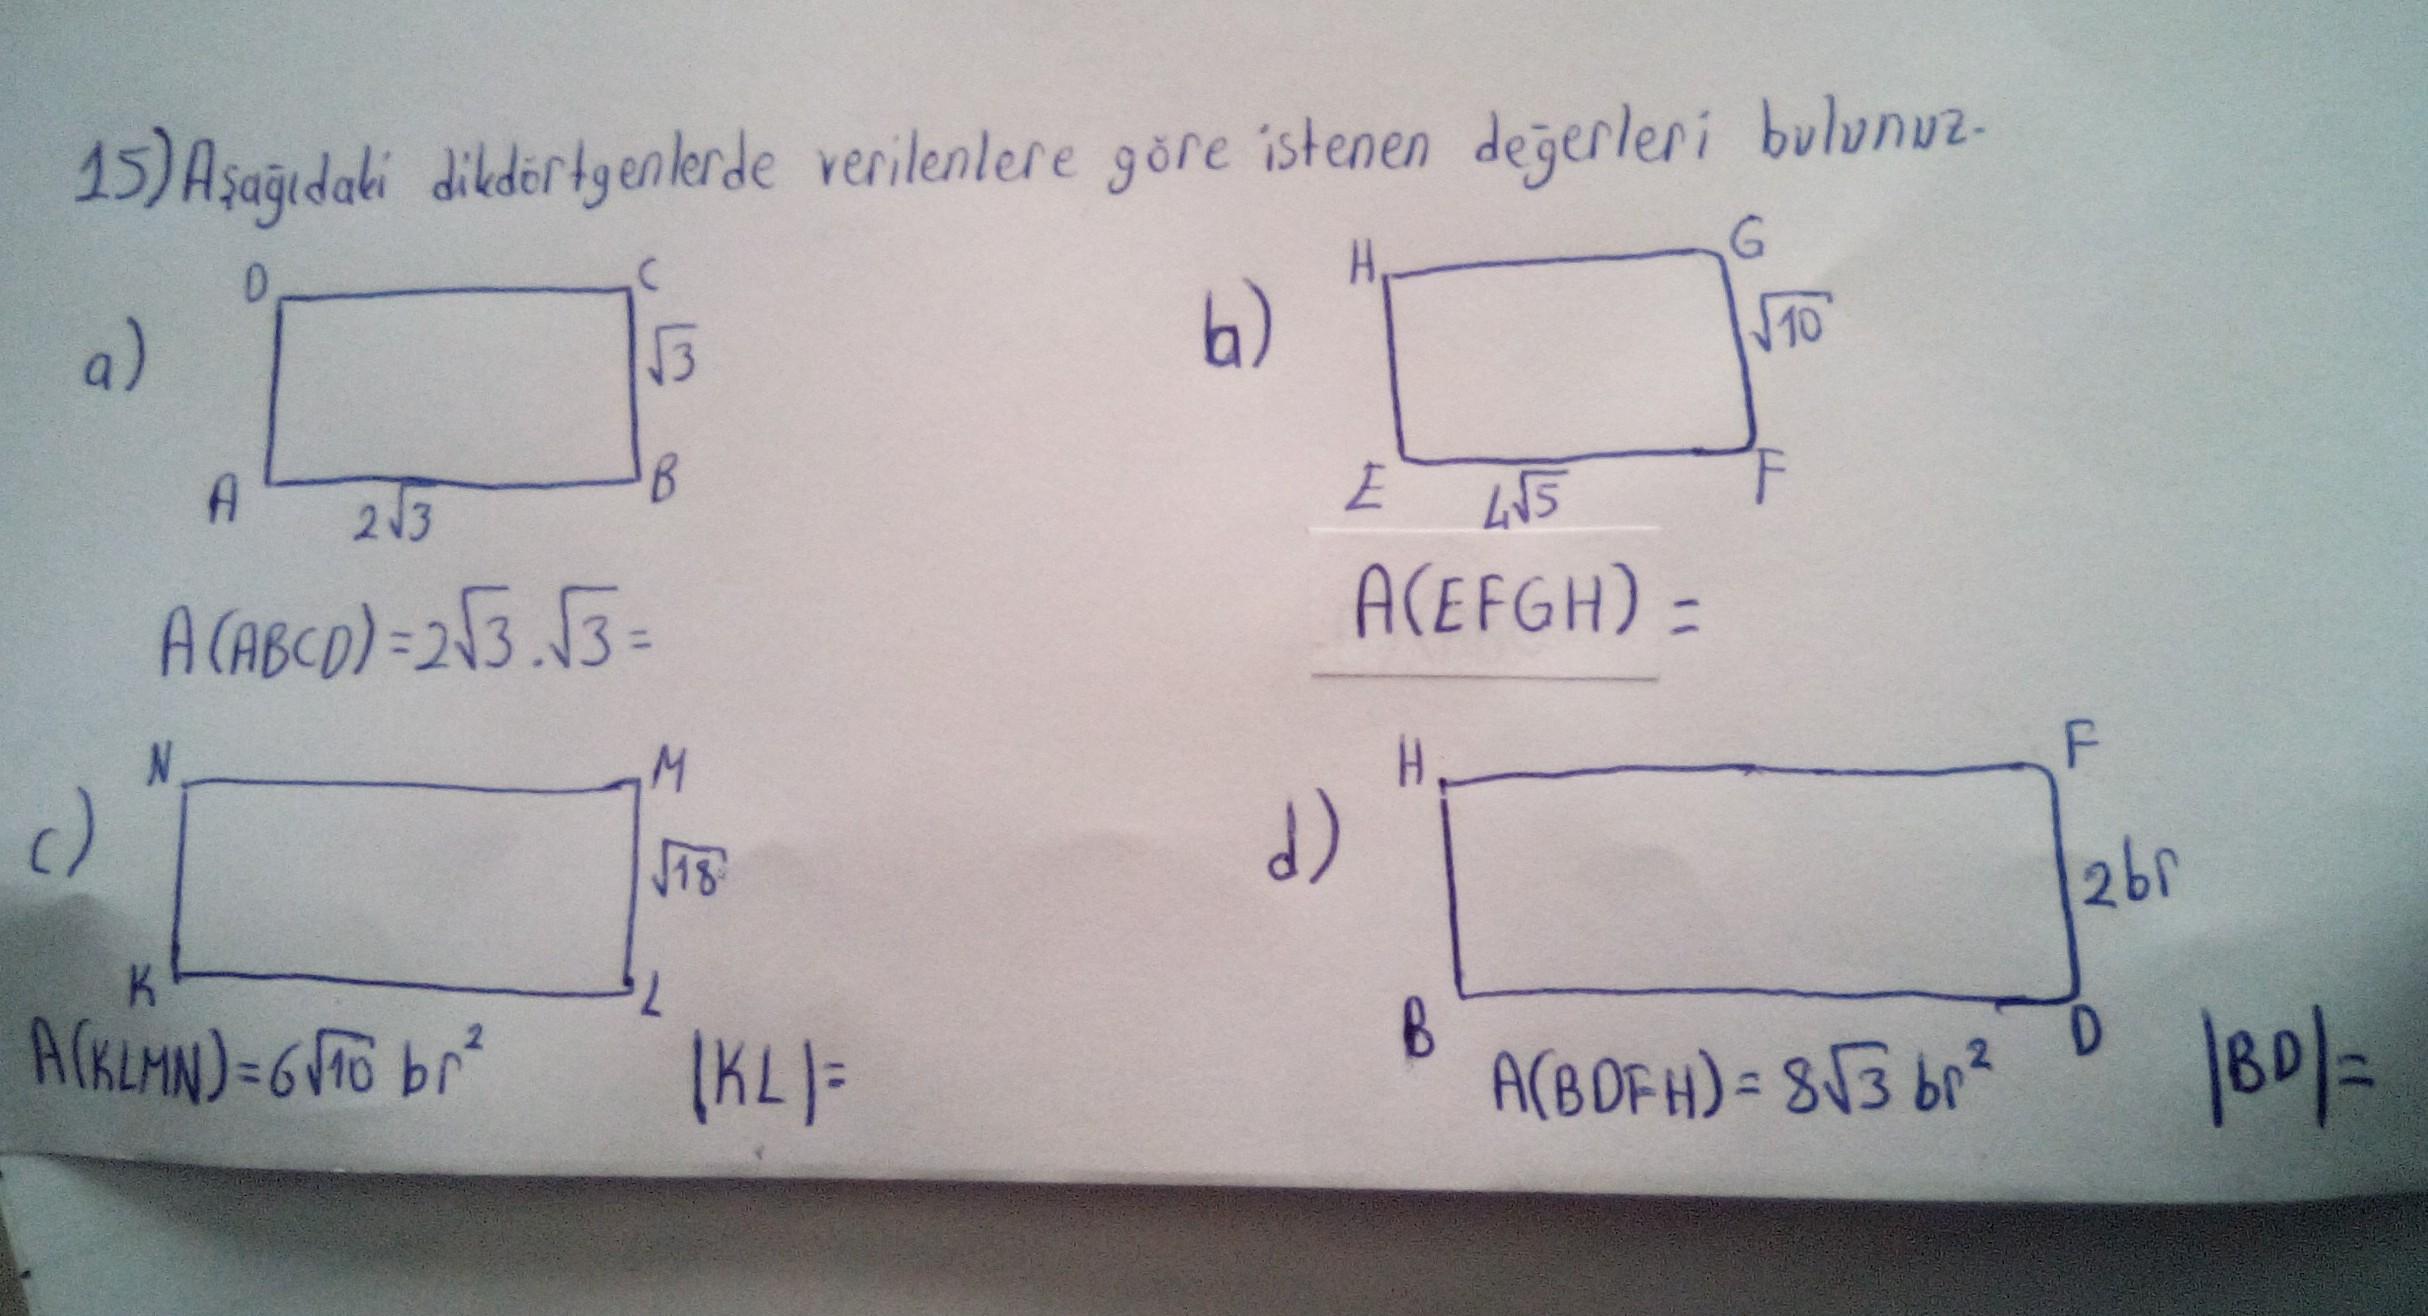 15) Aşağıdaki dikdörtgenlerde verilenlere göre istenen değerleri bulunuz.
a)
D C
√3
A B
2√3
A(ABCD)=2√3.√3=
b)
H G
√10
E F
4√5
A(EFGH) =
c)
N M
√18
K L
A(KLMN)=6√10 br² |KL|=
d)
H F
2br
B D
A(BDFH)=8√3 br² |BD|=